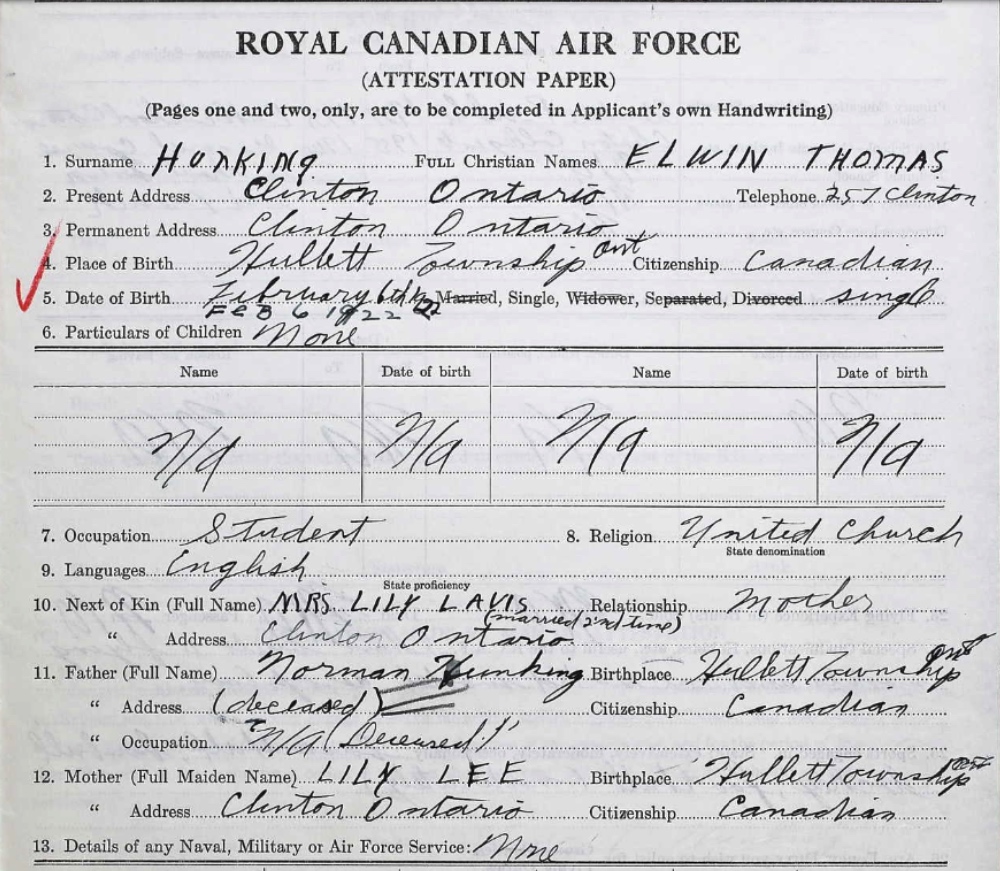 ROYAL CANADIAN AIR FORCE
(ATTESTATION PAPER)
(Pages one and two, only, are to be completed in Applicant's own Handwriting)
1. Surname HUNKING FULL Christian Names ELWIN THOMAS
2. Present Address Clinton Ontario Telephone 257 Clinton
3. Permanent Address Clinton Ontario
4. Place of Birth Hullett Township Ont Citizenship Canadian
5. Date of Birth February 6th Married, Single, Widower, Separated, Divorced single
FEB 6 1922
6. Particulars of Children None
Name Date of birth Name Date of birth
N/a N/a N/a N/a
7. Occupation Student 8. Religion United Church
State denomination
9. Languages English
State proficiency
10. Next of Kin (Full Name) MRS. LILY LAVIS Relationship Mother
(married 2nd time)
" Address Clinton Ontario
11. Father (Full Name) Norman Hunking Birthplace Hullett Township Ont
" Address (deceased) Citizenship Canadian
" Occupation N/a (Deceased)
12. Mother (Full Maiden Name) LILY LEE Birthplace Hullett Township Ont
" Address Clinton Ontario Citizenship Canadian
13. Details of any Naval, Military or Air Force Service: None